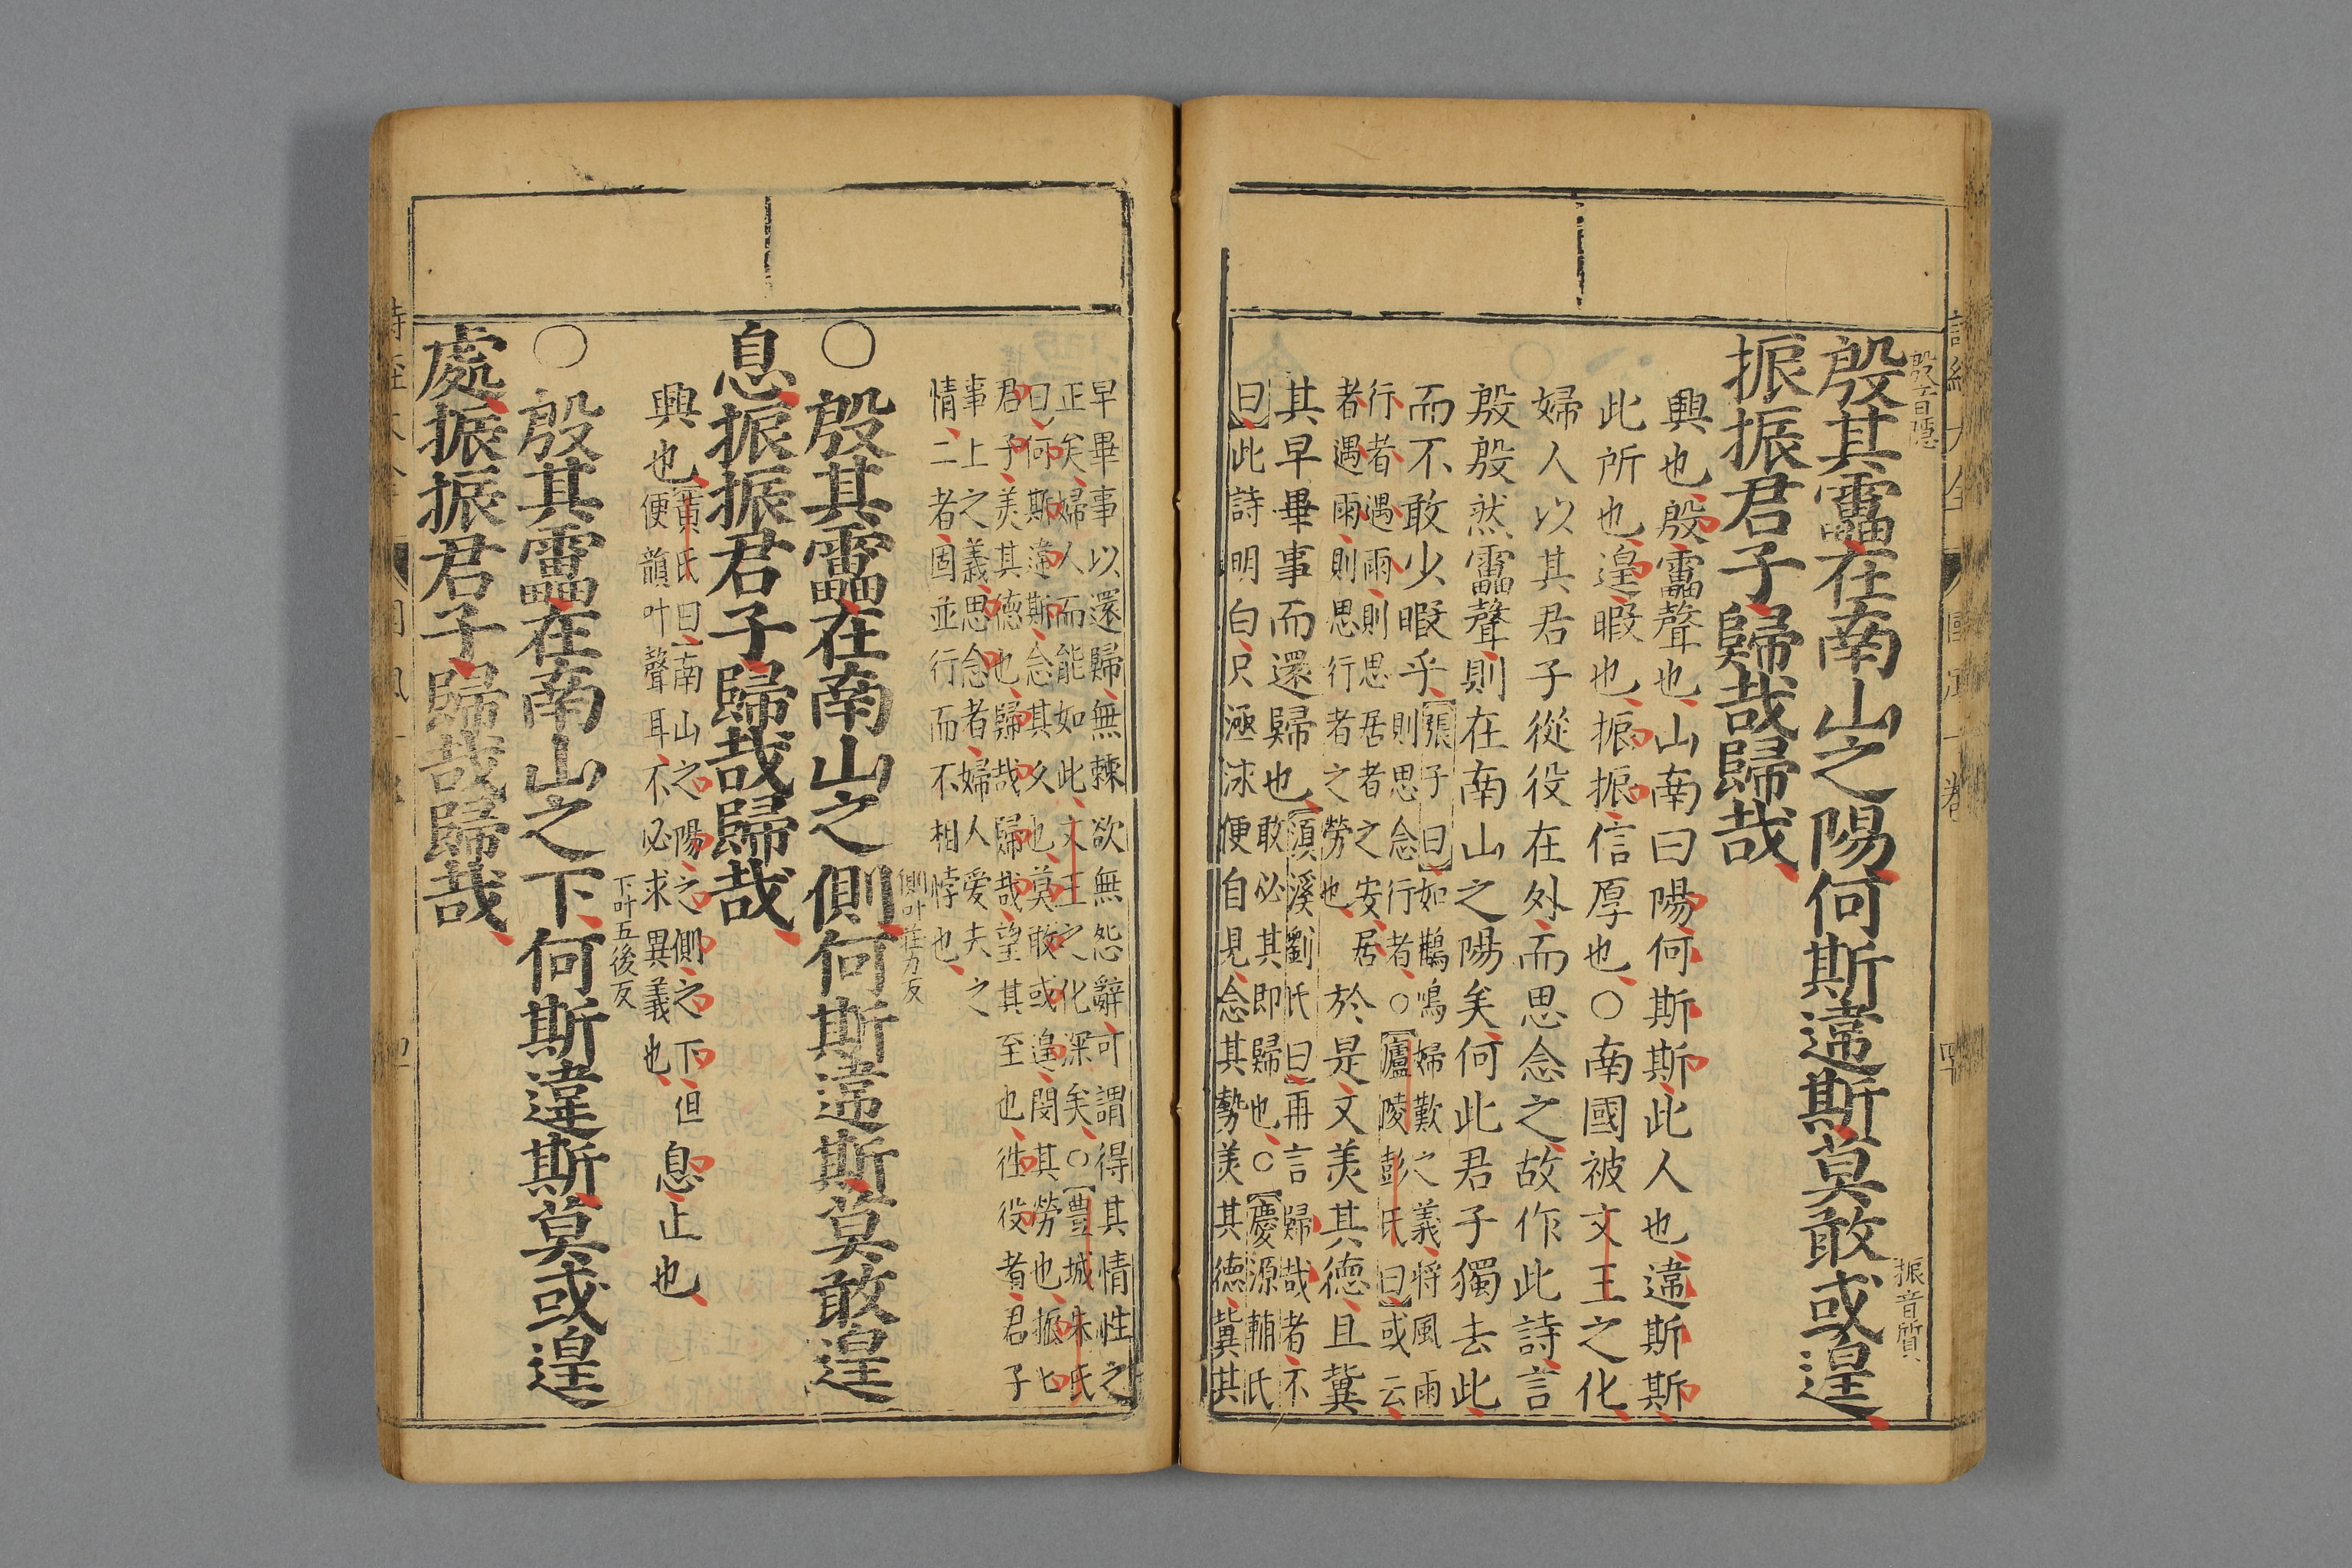 殷音隱
殷其靁在南山之陽何斯違斯莫敢或遑
振音質
振振君子歸哉歸哉
興也殷靁聲也山南曰陽何斯斯此人也違斯斯
此所也遑暇也振振信厚也○南國被文王之化
婦人以其君子從役在外而思念之故作此詩言
殷殷然靁聲則在南山之陽矣何此君子獨去此
而不敢少暇乎
張子曰如鸛鳴婦歎之義將風雨
則思念行者○廬陵彭氏曰或云
行者遇雨則思居者之安居
者遇雨則思行者之勞也
於是又美其德且冀
其早畢事而還歸也
須溪劉氏曰再言歸哉者不
敢必其即歸也○慶源輔氏
曰此詩明白只涵泳便自見念其勢美其德冀其
早畢事以還歸無棘欲無怨辭可謂得其情性之
正矣婦人而能如此文王之化深矣○豐城朱氏
曰何斯違斯念其久也莫敢或遑閔其勞也振匕
君子美其德也歸哉歸哉望其至也徃役者君子
事上之義思念者婦人愛夫之
情二者固並行而不相悖也
○殷其靁在南山之側何斯違斯莫敢遑
側叶莊力反
息振振君子歸哉歸哉
興也
黃氏曰南山之陽之側之下但
便韻叶聲耳不必求異義也
息止也
○殷其靁在南山之下何斯違斯莫或遑
下叶五後反
處振振君子歸哉歸哉